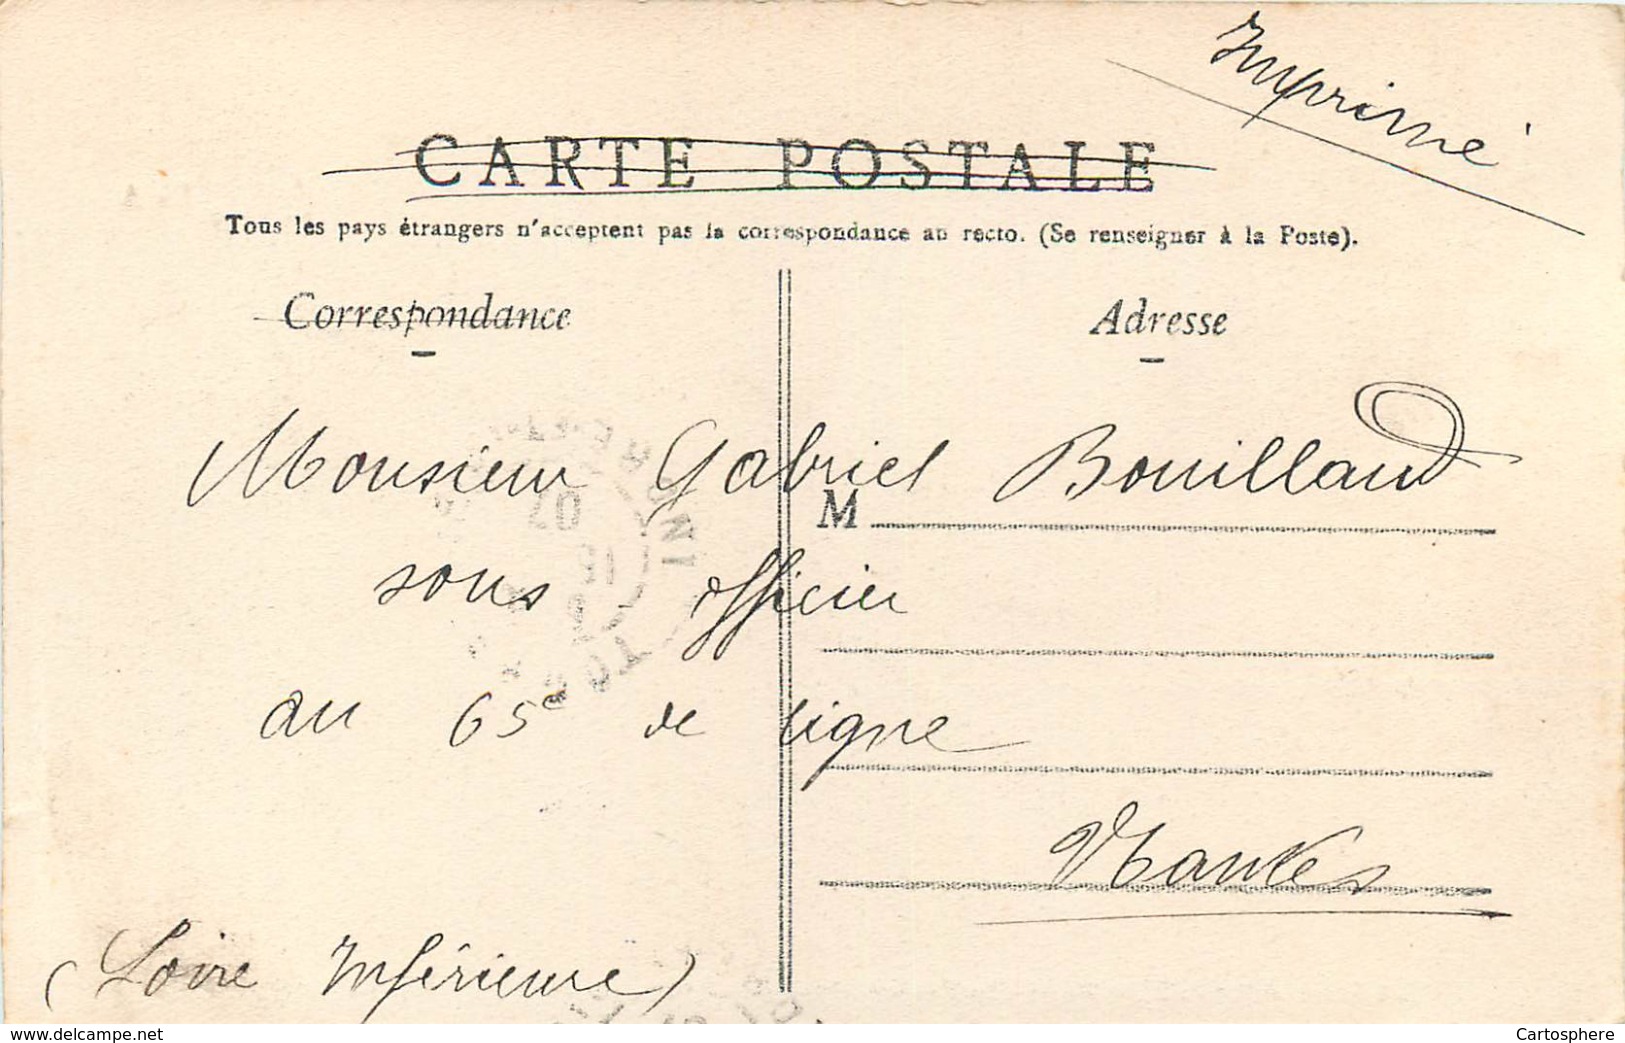 Imprimé
CARTE POSTALE
Tous les pays étrangers n'acceptent pas la correspondance au recto. (Se renseigner à la Poste).
Correspondance
Adresse
Monsieur Gabriel Bouillaud
M
sous officier
au 65e de ligne
Nantes
(Loire Inférieure)
www.delcampe.net
Cartosphere